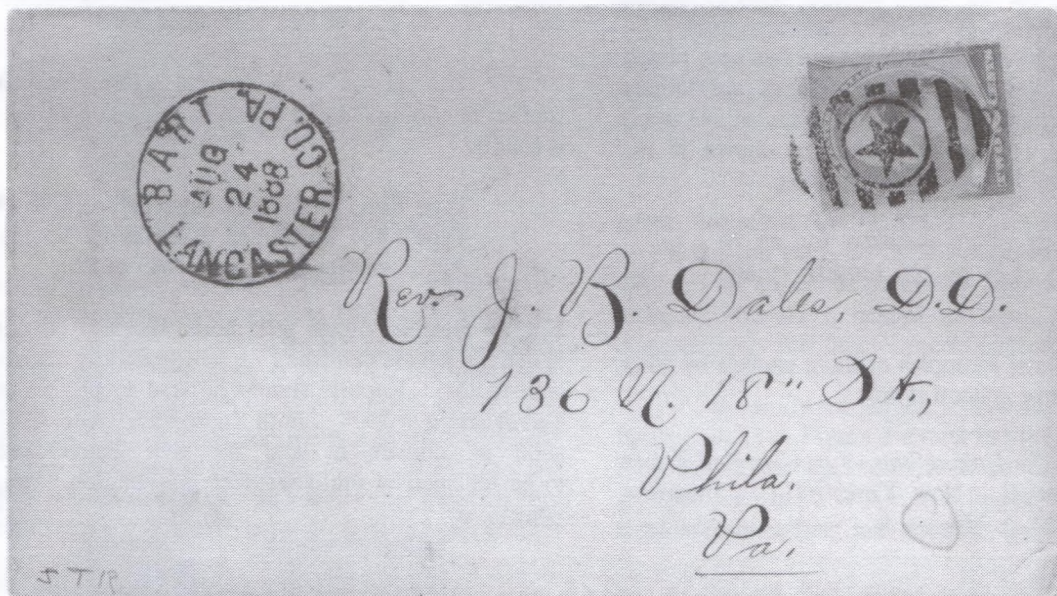 BART
LANCASTER CO. PA
AUG
24
1888
Rev. J. B. Dales, D.D.
136 N. 18" St.,
Phila.
Pa.
STR